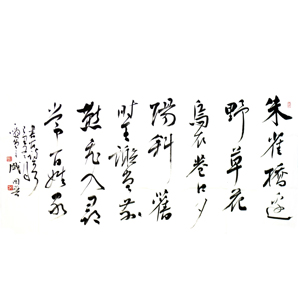 朱雀橋邊
野草花
烏衣巷口夕
陽斜舊
時王謝堂前
燕飛入尋
常百姓家